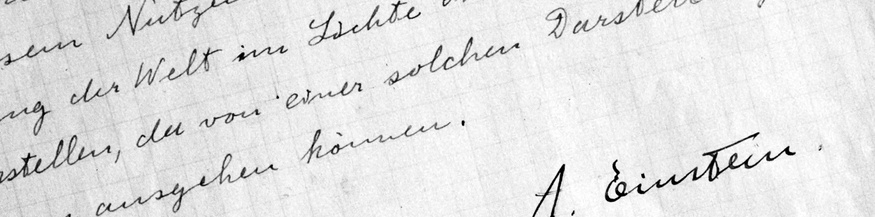 sem Nutze
ng der Welt im Lichte
stellen, da von einer solchen Darstell
ausgehen können.
A. Einstein.